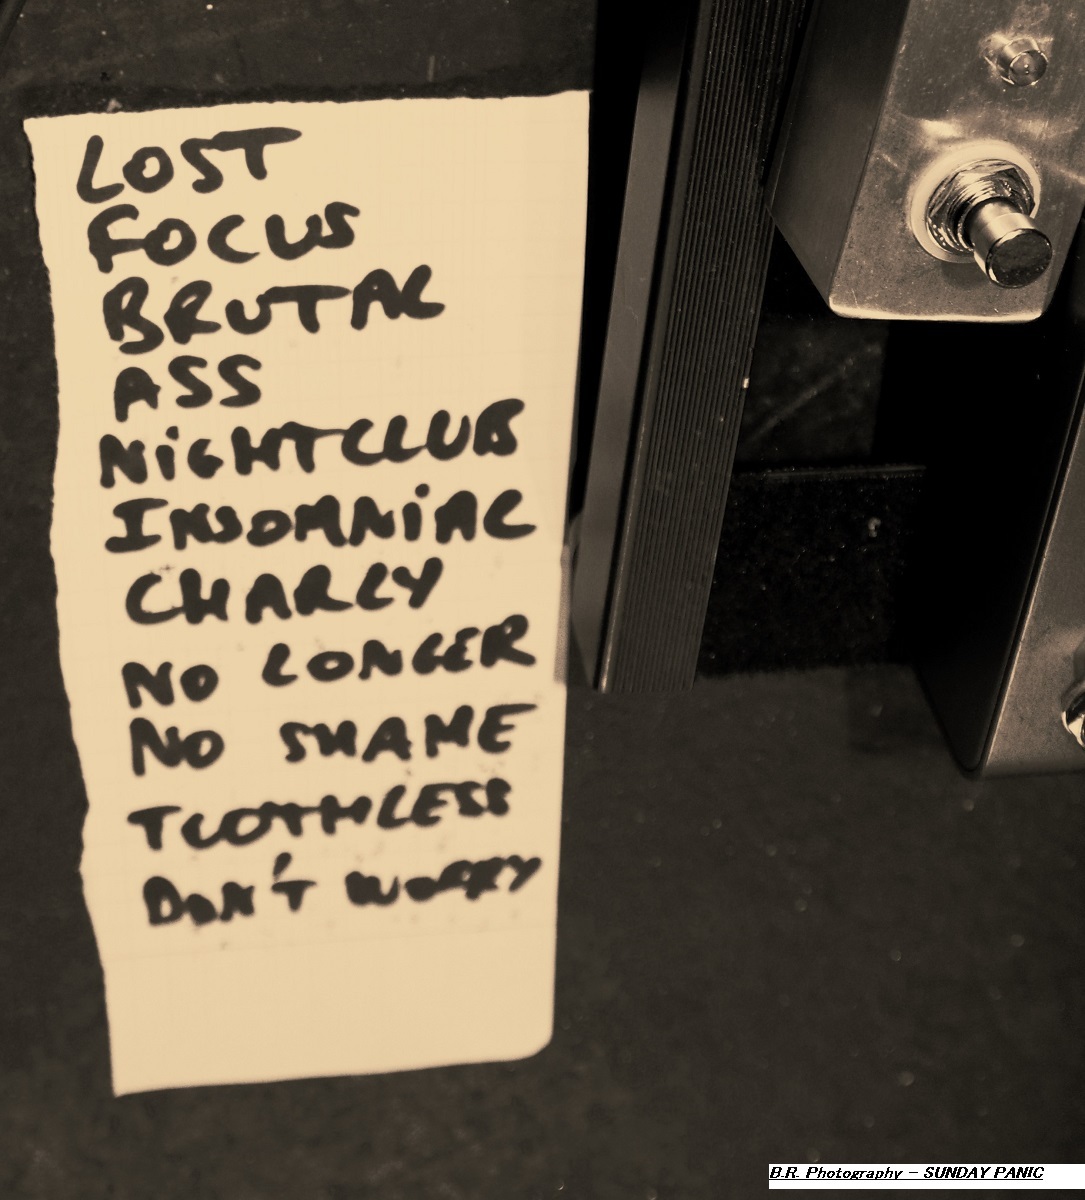 LOST
FOCUS
BRUTAL
ASS
NiGHTCLUB
INSOMNiAC
CHARLY
NO LONGER
NO SHAME
TOOTHLESS
DON'T WORRY
B.R. Photography - SUNDAY PANIC